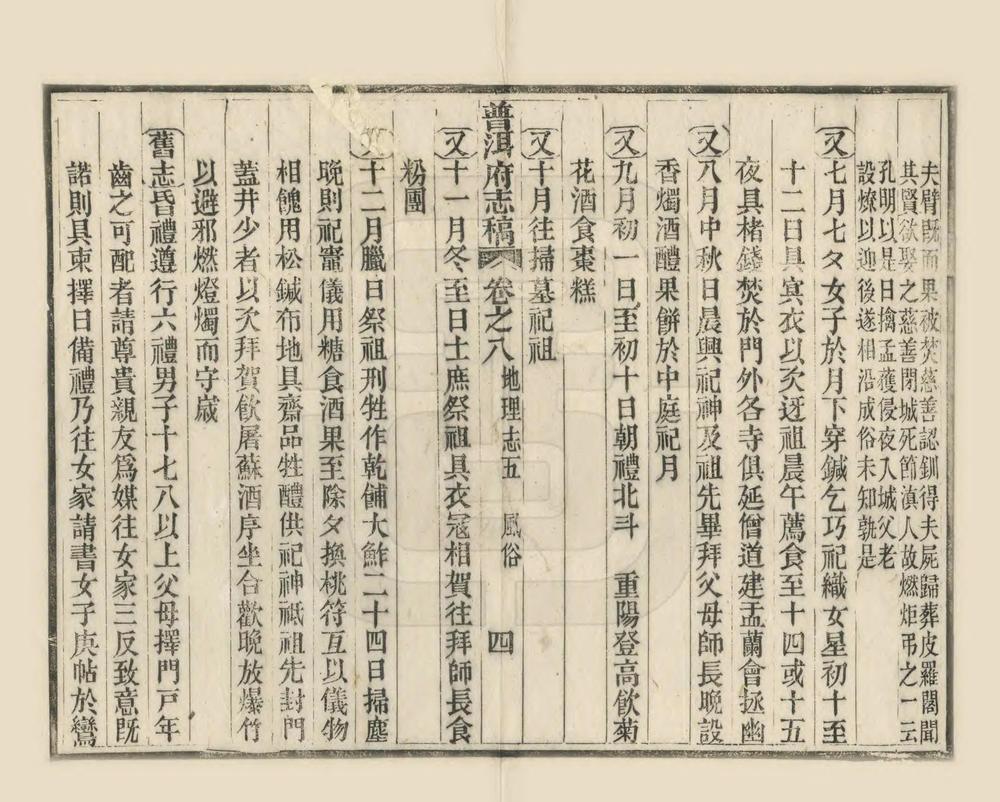 夫臂旣而果被焚慈善認釧得夫屍歸葬皮羅閣聞
其賢欲娶之慈善閉城死節滇人故燃炬弔之一云
孔明以是日擒孟獲侵夜入城父老
設燎以迎後遂相沿成俗未知孰是
又七月七夕女子於月下穿鍼乞巧祀織女星初十至
十二日具㝠衣以次迓祖晨午薦食至十四或十五
夜具楮錢焚於門外各寺俱延僧道建盂蘭會拯幽
又八月中秋日晨興祀神及祖先畢拜父母師長晚設
香燭酒醴果餅於中庭祀月
又九月初一日至初十日朝禮北斗 重陽登高飲菊
花酒食棗糕
又十月往掃墓祀祖
普洱府志稿 卷之八 地理志五 風俗 四
又十一月冬至日士庶祭祖具衣冠相賀往拜師長食
粉團
又十二月臘日祭祖刑牲作乾餔大鮓二十四日掃塵
晚則祀竈儀用糖食酒果至除夕換桃符互以儀物
相餽用松鍼布地具齋品牲醴供祀神祗祖先封門
蓋井少者以次拜賀飲屠蘇酒序坐合歡晚放爆竹
以避邪燃燈燭而守歲
舊志昏禮遵行六禮男子十七八以上父母擇門戸年
齒之可配者請尊貴親友爲媒往女家三反致意旣
諾則具柬擇日備禮乃往女家請書女子庚帖於鸞